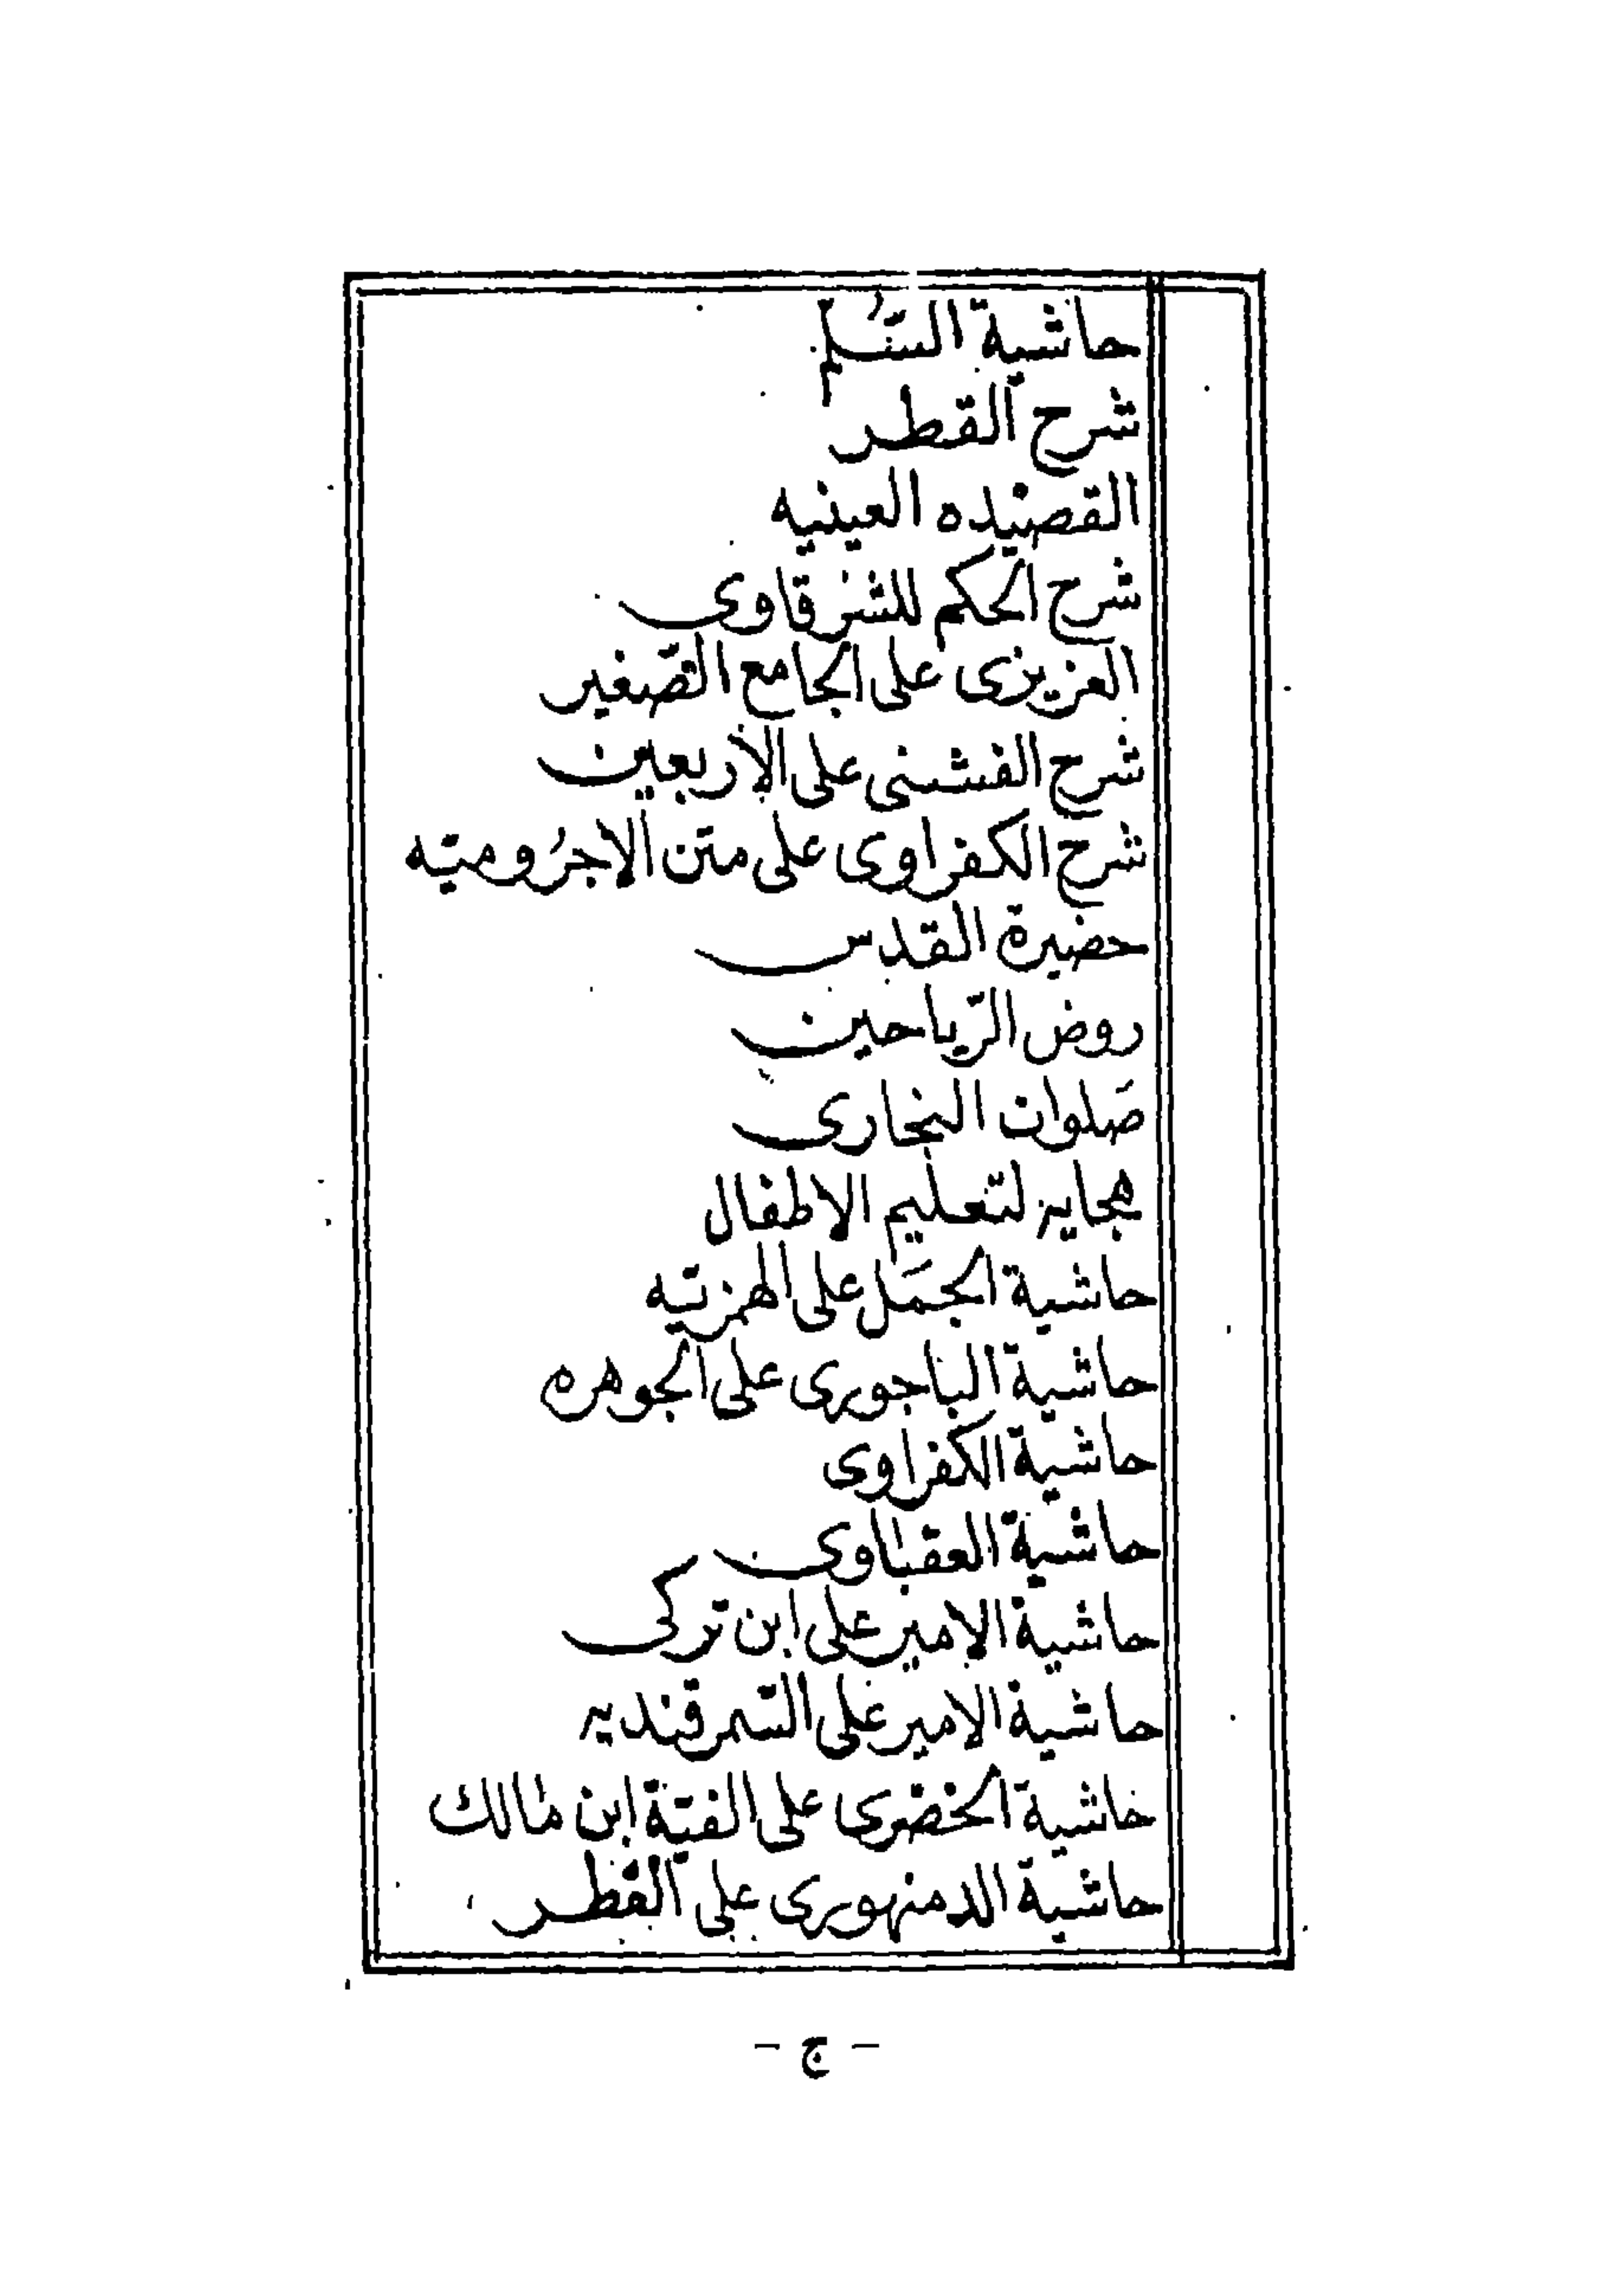 حاشية السُّلم
شرح القطر
القصيده العينيه
شرح الحكم للشرقاوى
العزيزى على الجامع الصّغير
شرح الفشنى على الاربعين
شرح الكفراوى على متن الاجرُوميّه
حضيرة القدس
روض الرّياحين
صَلوان البخارى
هجايه لتعليم الاطفال
حاشية الجمَل على الهمزيّه
حاشية الباجورى على الجوهره
حاشية الكفراوى
حاشية العقباوى
حاشية الامير على ابن تركى
حاشية الامير على السّمرقنديه
حاشية الخضرى على الفيّة ابن مالك
حاشية الدمنهورى على القطر
- ج -